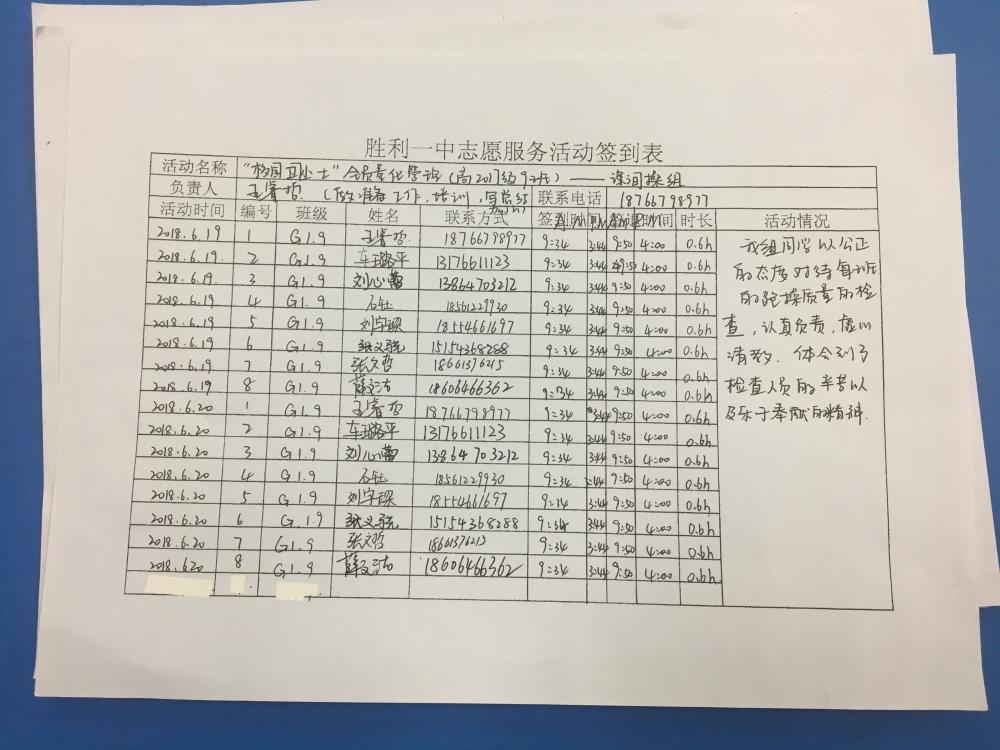 胜利一中志愿服务活动签到表
活动名称 "校园卫士"全质量化管理(高2017级9班)——课间操组
负责人 王睿哲.(做准备工作,培训,写总结 联系电话 18766798977
活动时间 编号 班级 姓名 联系方式 签到 时间 时长 活动情况
2018.6.19 1 G1.9 王睿哲 18766798977 9:34 3:44 9:50 4:00 0.6h
2018.6.19. 2 G1.9 车璐平 13176611123 9:34 3:44 9:50 4:00 0.6h
2018.6.19. 3 G1.9 刘心蕾 13864703212 9:34 3:44 9:50 4:00 0.6h
2018.6.19 4 G1.9 石钰 18561229930 9:34 3:44 9:50 4:00 0.6h
2018.6.19 5 G1.9 刘宇琛 18554661697 9:34 3:44 9:50 4:00 0.6h
2018.6.19 6 G1.9 15154368288 9:34 3:44 9:50 4:00 0.6h
2018.6.19 7 G1.9 张文哲 18661376215 9:34 3:44 9:50 4:00 0.6h
2018.6.19 8 G1.9 薛文洁 18606466362 9:34 3:44 9:50 4:00 0.6h
2018.6.20 1 G1.9 王睿哲 18766798977 9:34 3:44 9:50 4:00 0.6h
2018.6.20 2 G1.9 车璐平 13176611123 9:34 3:44 9:50 4:00 0.6h
2018.6.20 3 G1.9 刘心蕾 13864703212 9:34 3:44 9:50 4:00 0.6h
2018.6.20 4 G1.9 石钰 18561229930 9:34 3:44 9:50 4:00 0.6h
2018.6.20 5 G1.9 刘宇琛 18554661697 9:34 3:44 9:50 4:00 0.6h
2018.6.20 6 G1.9 15154368288 9:34 3:44 9:50 4:00 0.6h
2018.6.20 7 G1.9 张文哲 18661376215 9:34 3:44 9:50 4:00 0.6h
2018.6.20 8 G1.9 薛文洁 18606466362 9:34 3:44 9:50 4:00 0.6h
我组同学以公正
的态度对待每班
的跑操质量的检
查,认真负责,虚心
请教.体会到了
检查人员的辛苦以
及乐于奉献的精神.